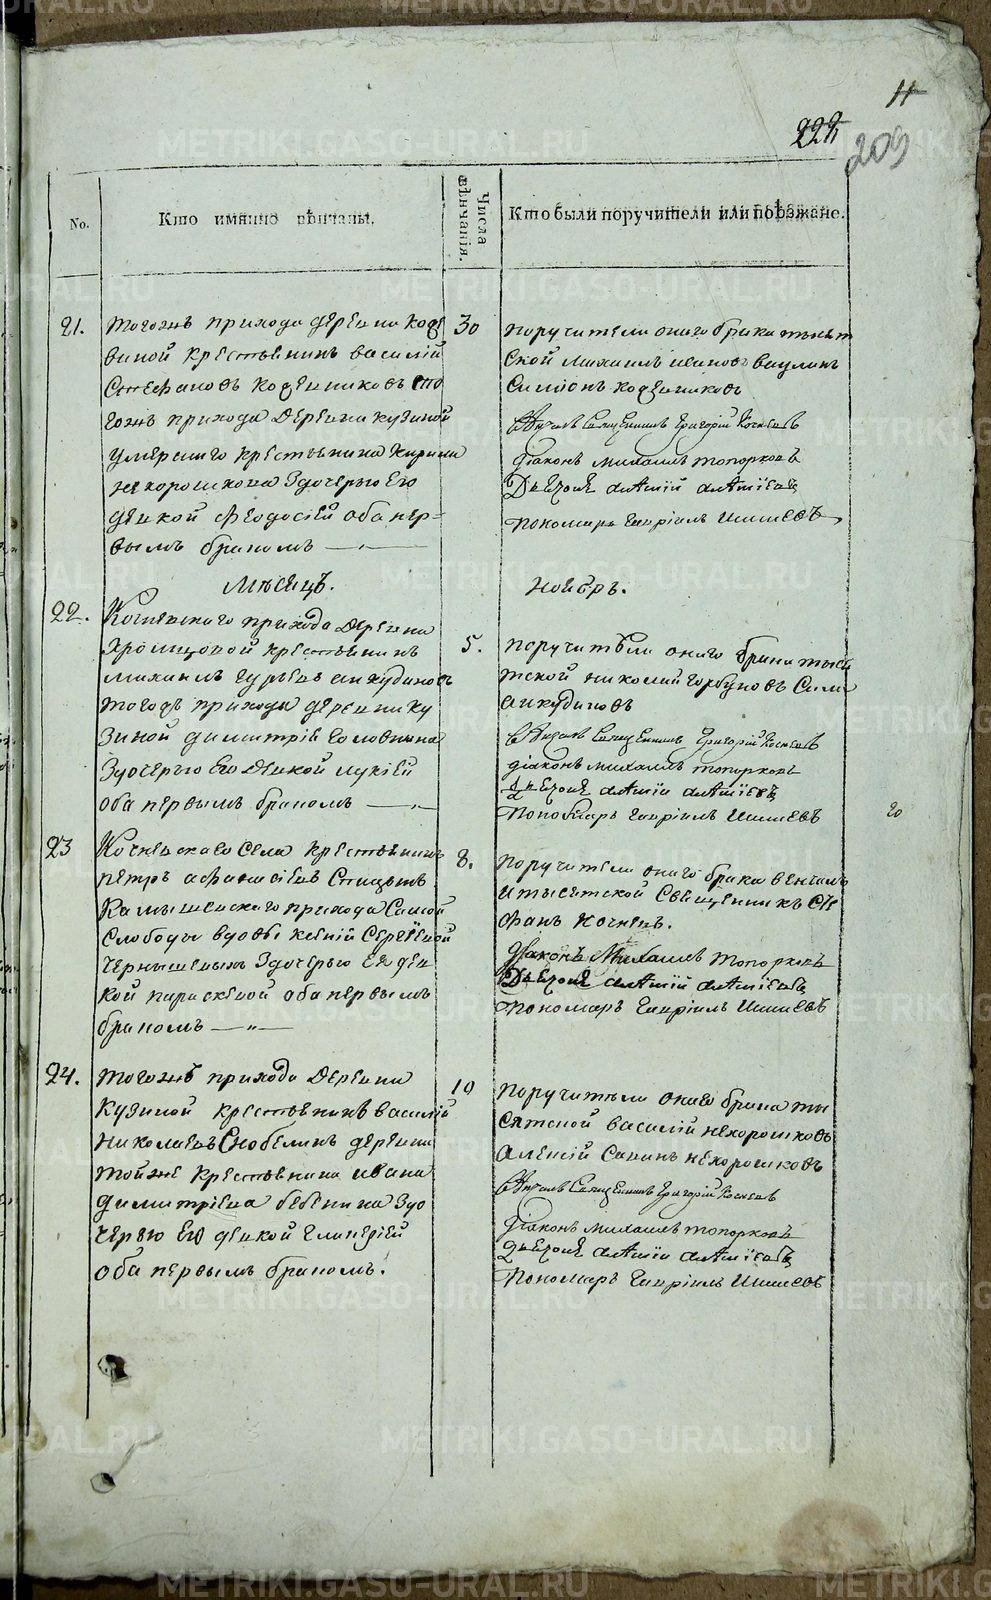 11
222
209
No.
Кто имянно вѣнчаны.
Числа вѣнчанія.
Кто были поручители или поѣзжане.
21.
тогожъ прихода деревни Коже
виной крестьянинъ василій
Стефановъ Кожевниковъ Сто
гожъ прихода деревни кузиной
умершаго крестьянина Кирила
нехорошкова Здочерью Его
девкой феодосіей оба пер-
вымъ бракомъ
30
поручители онаго брака тысят
Ской михаилъ ивановъ ваулинъ
Симіонъ кожевниковъ
Вѣнчалъ Священникъ Григорій Кочневъ
діаконъ михаилъ топорковъ
Дьячокъ
пономарь гавріилъ Шишевъ
Мѣсяцъ.
ноябрь.
22.
Кочневскаго прихода деревни
Хромцовой крестьянинъ
михаилъ гурьевъ анкудиновъ
тогожъ прихода деревни ку
зиной димитрія головнина
Здочерью Его девкой лукіей
оба первымъ бракомъ
5.
поручители онаго брака тыся
тской николай горбуновъ
анкудиновъ
Вѣнчалъ Священникъ Григорій Кочневъ
діаконъ михаилъ топорковъ
Дьячокъ
Пономарь гавріилъ Шишевъ
20
23
Кочневскаго Села крестьянинъ
петръ афанасіевъ Спицынъ
Камышевскаго прихода Самой
Слободы вдовы ксеніи Сергѣевой
Чернышевыхъ Здочерью Ея дев
кой параскевой оба первымъ
бракомъ
8.
поручители онаго брака венчалъ
итысятской Священникъ Сте
фанъ Кочневъ.
діаконъ Михаилъ топорковъ
Дьячокъ
Пономарь гавріилъ Шишевъ
24.
тогожъ прихода деревни
Кузиной крестьянинъ василій
николаевъ Скобелинъ деревни
тойже крестьянина ивана
димитріева бабенина Здо
черью Его девкой гликеріей
оба первымъ бракомъ.
10
поручители онаго брака ты
сятской василій нехорошковъ
алексій Савинъ нехорошковъ
Вѣнчалъ Священникъ Григорій Кочневъ
діаконъ михаилъ топорковъ
дьячокъ
Пономарь гавріилъ Шишевъ
METRIKI.GASO-URAL.RU